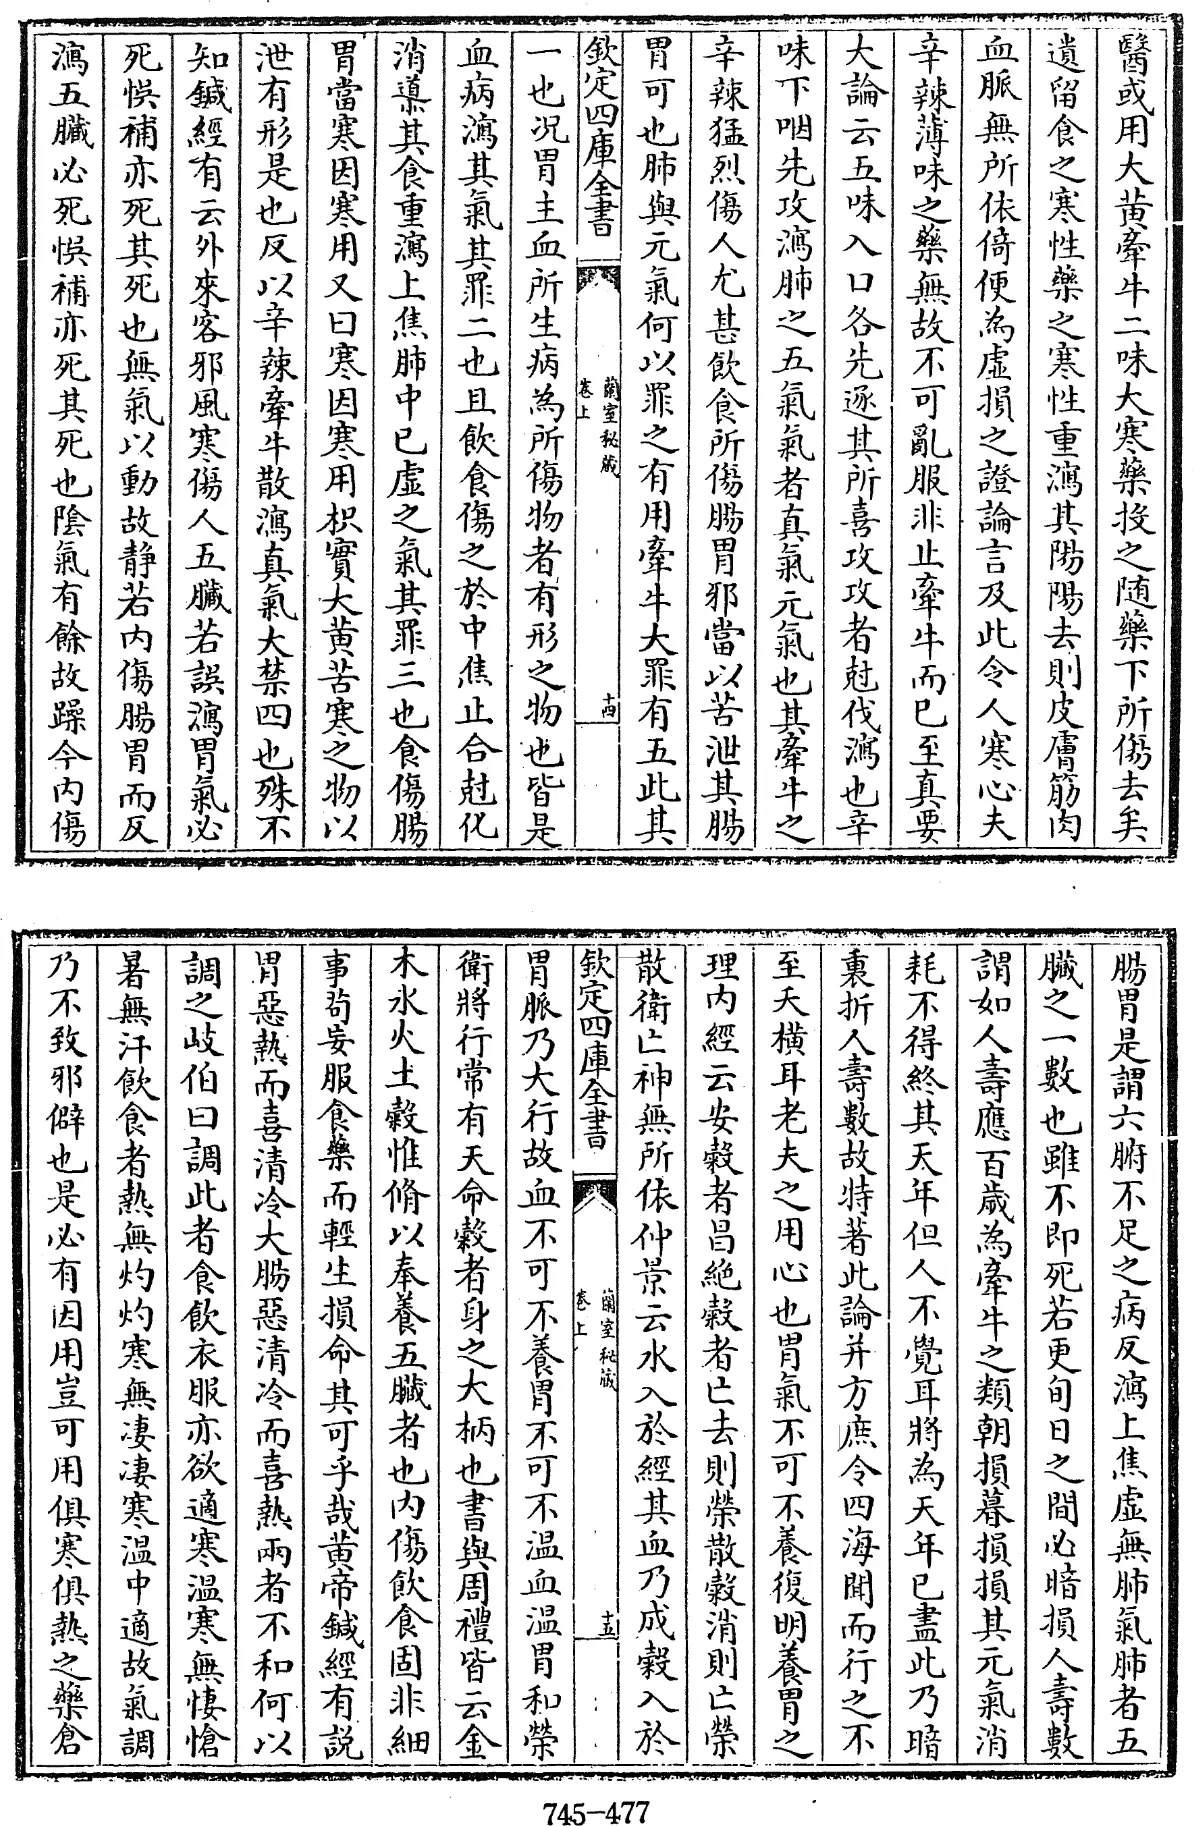 醫或用大黃牽牛二味大寒藥投之随藥下所傷去矣
遺留食之寒性藥之寒性重瀉其陽陽去則皮膚筋肉
血脈無所依倚便為虛損之證論言及此令人寒心夫
辛辣薄味之藥無故不可亂服非止牽牛而已至真要
大論云五味入口各先逐其所喜攻攻者尅伐瀉也辛
味下咽先攻瀉肺之五氣氣者真氣元氣也其牽牛之
辛辣猛烈傷人尤甚飲食所傷腸胃邪當以苦泄其腸
胃可也肺與元氣何以罪之有用牽牛大罪有五此其
欽定四庫全書
蘭室秘藏
卷上
十四
一也况胃主血所生病為所傷物者有形之物也皆是
血病瀉其氣其罪二也且飲食傷之於中焦止合尅化
消導其食重瀉上焦肺中已虛之氣其罪三也食傷腸
胃當寒因寒用又曰寒因寒用枳實大黃苦寒之物以
泄有形是也反以辛辣牽牛散瀉真氣大禁四也殊不
知鍼經有云外來客邪風寒傷人五臟若誤瀉胃氣必
死悞補亦死其死也無氣以動故静若内傷腸胃而反
瀉五臟必死悞補亦死其死也陰氣有餘故躁今内傷
腸胃是謂六腑不足之病反瀉上焦虛無肺氣肺者五
臟之一數也雖不即死若更旬日之間必暗損人壽數
謂如人壽應百歲為牽牛之類朝損暮損損其元氣消
耗不得終其天年但人不覺耳將為天年已盡此乃暗
裏折人壽數故特著此論并方庶令四海聞而行之不
至夭橫耳老夫之用心也胃氣不可不養復明養胃之
理内經云安穀者昌絶穀者亡去則榮散穀消則亡榮
散衛亡神無所依仲景云水入於經其血乃成穀入於
欽定四庫全書
蘭室秘藏
卷上
十五
胃脈乃大行故血不可不養胃不可不温血温胃和榮
衛將行常有天命穀者身之大柄也書與周禮皆云金
木水火土穀惟脩以奉養五臟者也内傷飲食固非細
事苟妄服食藥而輕生損命其可乎哉黃帝鍼經有説
胃惡熱而喜清冷大腸惡清冷而喜熱兩者不和何以
調之岐伯曰調此者食飲衣服亦欲適寒温寒無悽愴
暑無汗飲食者熱無灼灼寒無凄凄寒温中適故氣調
乃不致邪僻也是必有因用豈可用俱寒俱熱之藥倉
745-477